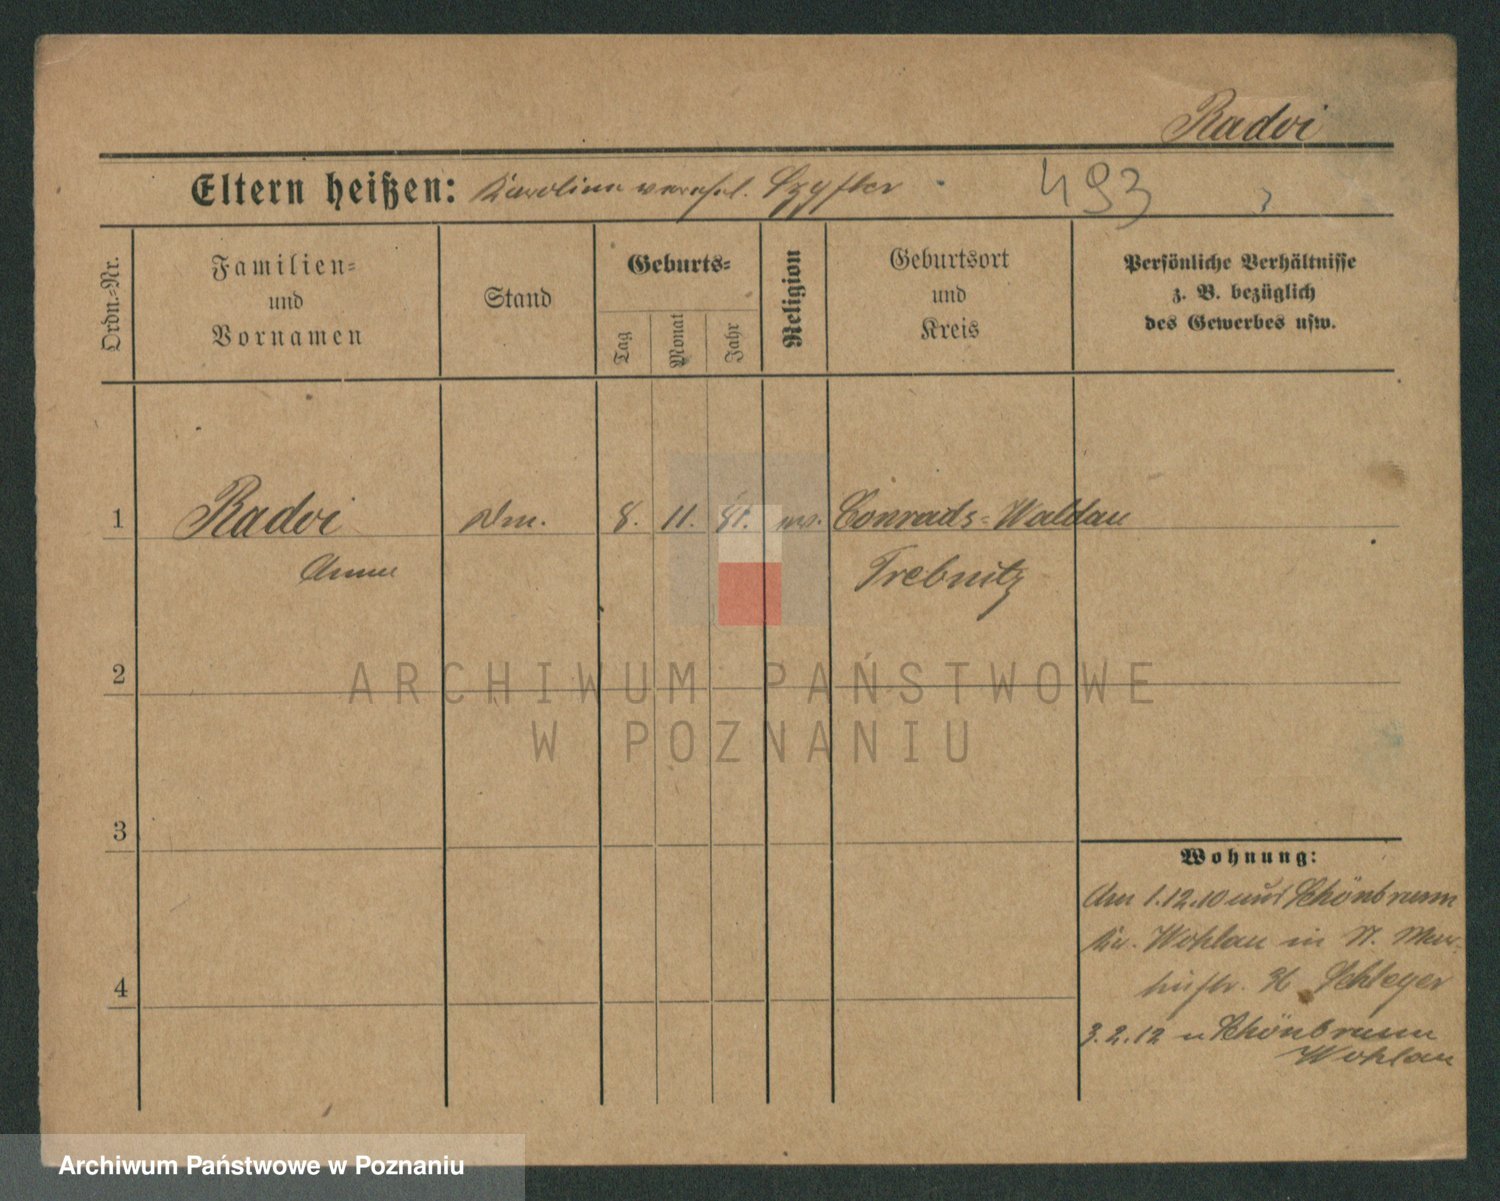 Radvi
Eltern heißen: Karolina verehel. 493
Ordn.-Nr.
Familien-
und
Vornamen
Stand
Geburts-
Tag
Monat
Jahr
Religion
Geburtsort
und
Kreis
Persönliche Verhältnisse
z. B. bezüglich
des Gewerbes usw.
1 Radvi 8. 11. 81. Conrads-Waldau
Anna Trebnitz
2
3
4
Wohnung:
Am 1.12.10 Schönbrunn
Kr. Wohlau in
Schleyer
3.2.12 n Schönbrunn
Wohlau
ARCHIWUM PAŃSTWOWE
W POZNANIU
Archiwum Państwowe w Poznaniu